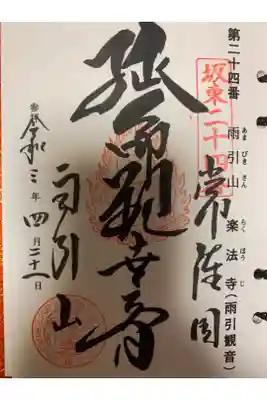 第二十四番 雨引山 楽法寺(雨引観音)
あま びき さん らく ほう じ
坂東二十四
常陸国
延命観世音
雨引山
令和三年四月二十一日